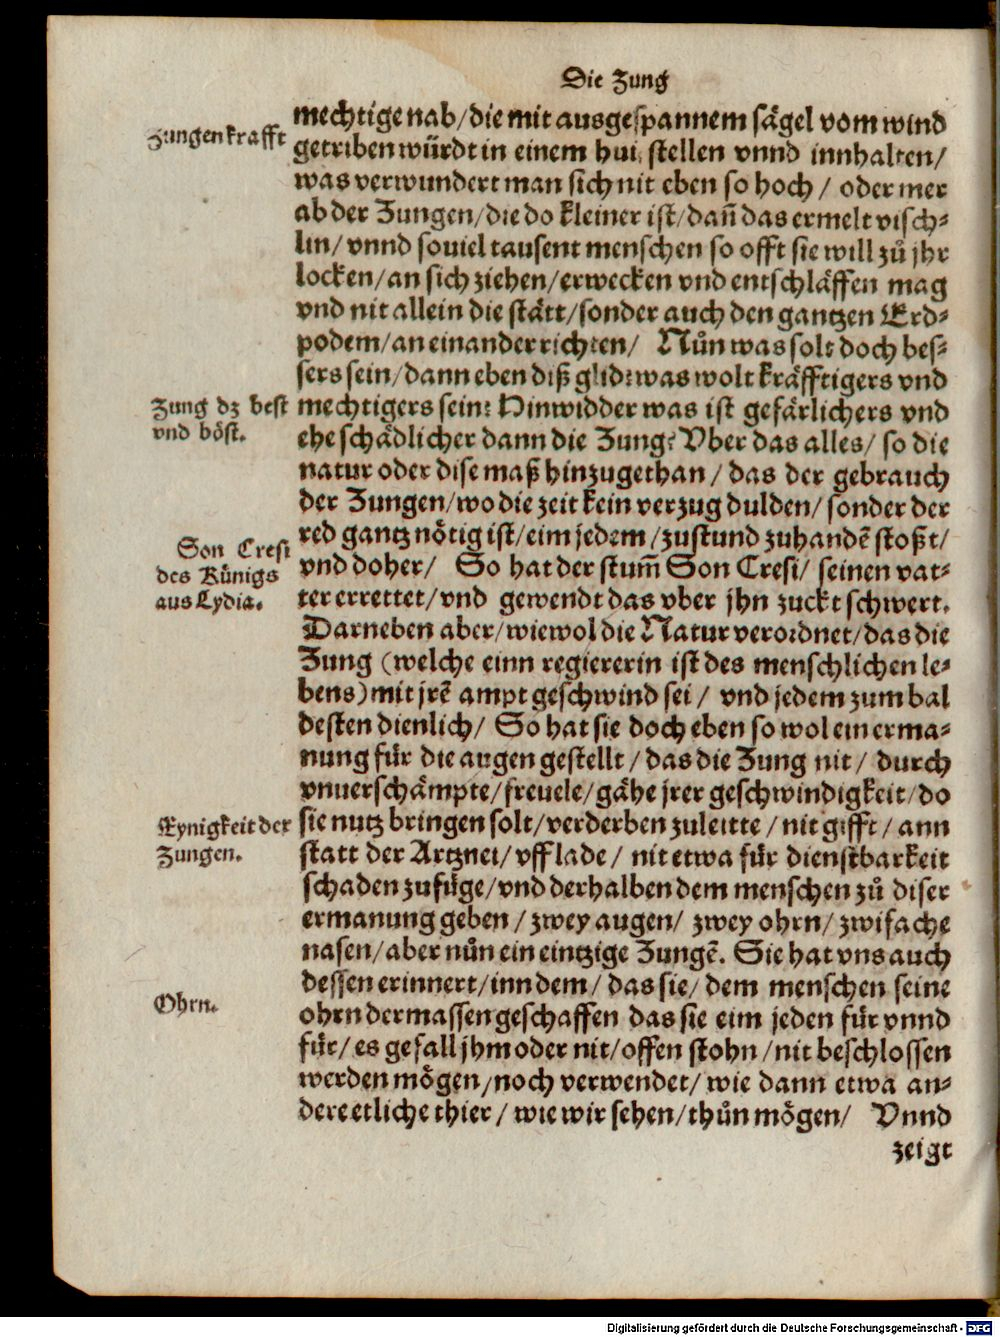 Die Zung
mechtige nab/die mit ausgespannem sågel vom wind
Zungen krafft
getriben würdt in einem hui stellen vnnd innhalten/
was verwundert man sich nit eben so hoch/ oder mer
ab der Zungen/die do kleiner ist/dañ das ermelt visch⸗
lin/ vnnd souiel tausent menschen so offt sie will zů jhr
locken/an sich ziehen/erwecken vnd entschlåffen mag
vnd nit allein die stått/sonder auch den gantzen Erd⸗
podem/an einander richten/ Nůn was solt doch bes⸗
sers sein/dann eben diß glid: was wolt kråfftigers vnd
Zung dz best
vnd böst.
mechtigers sein? Hinwidder was ist gefårlichers vnd
ehe schådlicher dann die Zung? Vber das alles/ so die
natur oder dise maß hinzugethan/ das der gebrauch
der Zungen/wo die zeit kein verzug dulden/ sonder der
red gantz nötig ist/eim jedem/zustund zuhandē stoßt/
Son Cresi
des Künigs
aus Lydia.
vnd doher/ So hat der stum̄ Son Cresi/ seinen vat⸗
ter errettet/vnd gewendt das vber jhn zuckt schwert.
Darneben aber/wiewol die Natur verordnet/das die
Zung (welche einn regiererin ist des menschlichen le⸗
bens) mit jrē ampt geschwind sei/ vnd jedem zum bal
desten dienlich/ So hat sie doch eben so wol ein erma⸗
nung für die augen gestellt/das die Zung nit/ durch
vnuerschåmpte/freuele/gåhe jrer geschwindigkeit/do
Eynigkeit der
Zungen.
sie nutz bringen solt/verderben zuleitte/nit gifft/ ann
statt der Artznei/vfflade/ nit etwa für dienstbarkeit
schaden zufüge/vnd derhalben dem menschen zů diser
ermanung geben/zwey augen/ zwey ohrn/ zwifache
nasen/aber nůn ein eintzige Zungē. Sie hat vns auch
dessen erinnert/inn dem/das sie/ dem menschen seine
Ohrn.
ohrn dermassen geschaffen das sie eim jeden für vnnd
für/es gefall jhm oder nit/offen stohn/nit beschlossen
werden mögen/noch verwendet/wie dann etwa an⸗
dere etliche thier/ wie wir sehen/thůn mögen/ Vnnd
zeigt
Digitalisierung gefördert durch die Deutsche Forschungsgemeinschaft - DFG